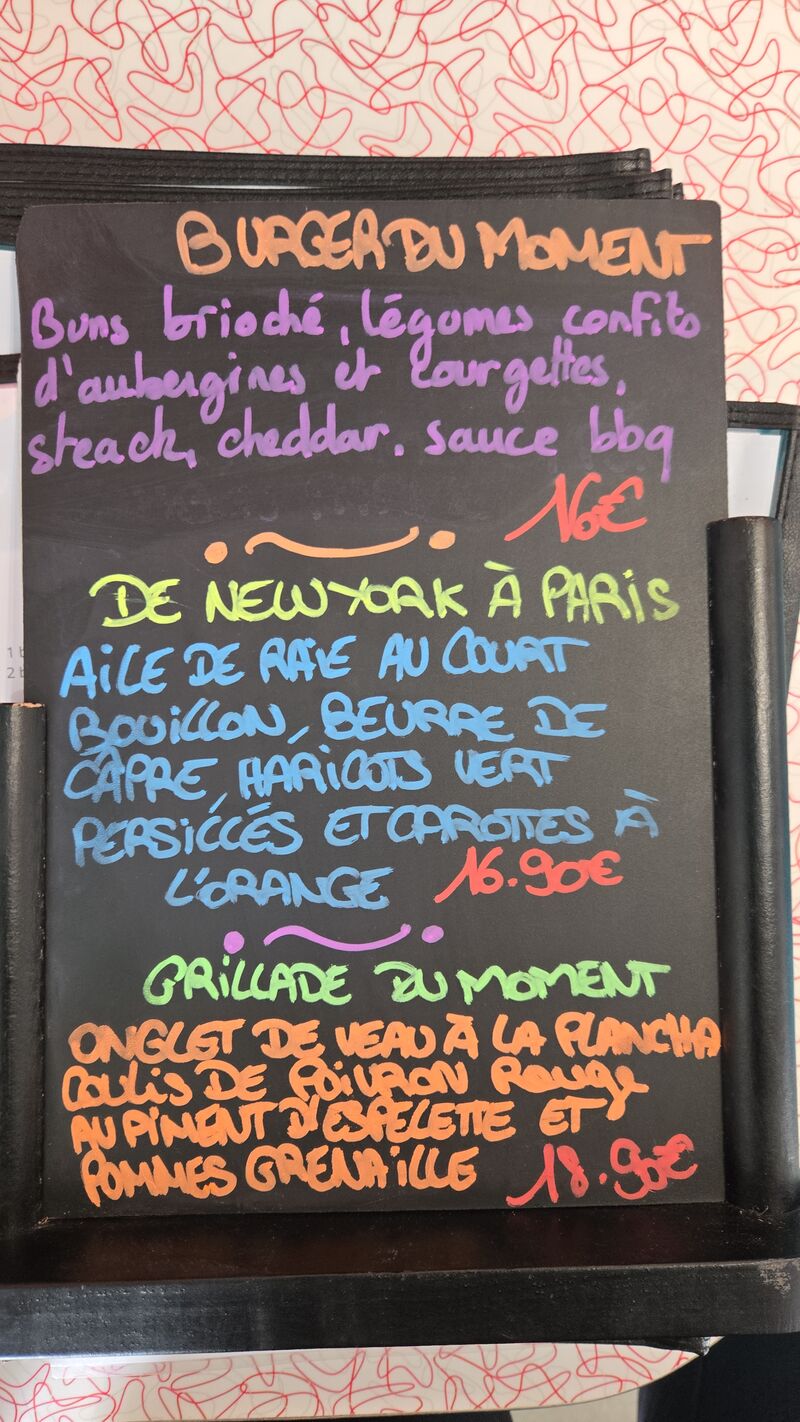 BURGER DU MOMENT
Buns brioché, légumes confits
d'aubergines et courgettes,
steack, cheddar, sauce bbq
16€
DE NEW YORK À PARIS
AILE DE RAIE AU COURT
BOUILLON, BEURRE DE
CÂPRE, HARICOTS VERT
PERSILLÉS ET CAROTTES À
L'ORANGE 16.90€
GRILLADE DU MOMENT
ONGLET DE VEAU À LA PLANCHA
COULIS DE POIVRON ROUGE
AU PIMENT D'ESPELETTE ET
POMMES GRENAILLE 18.90€